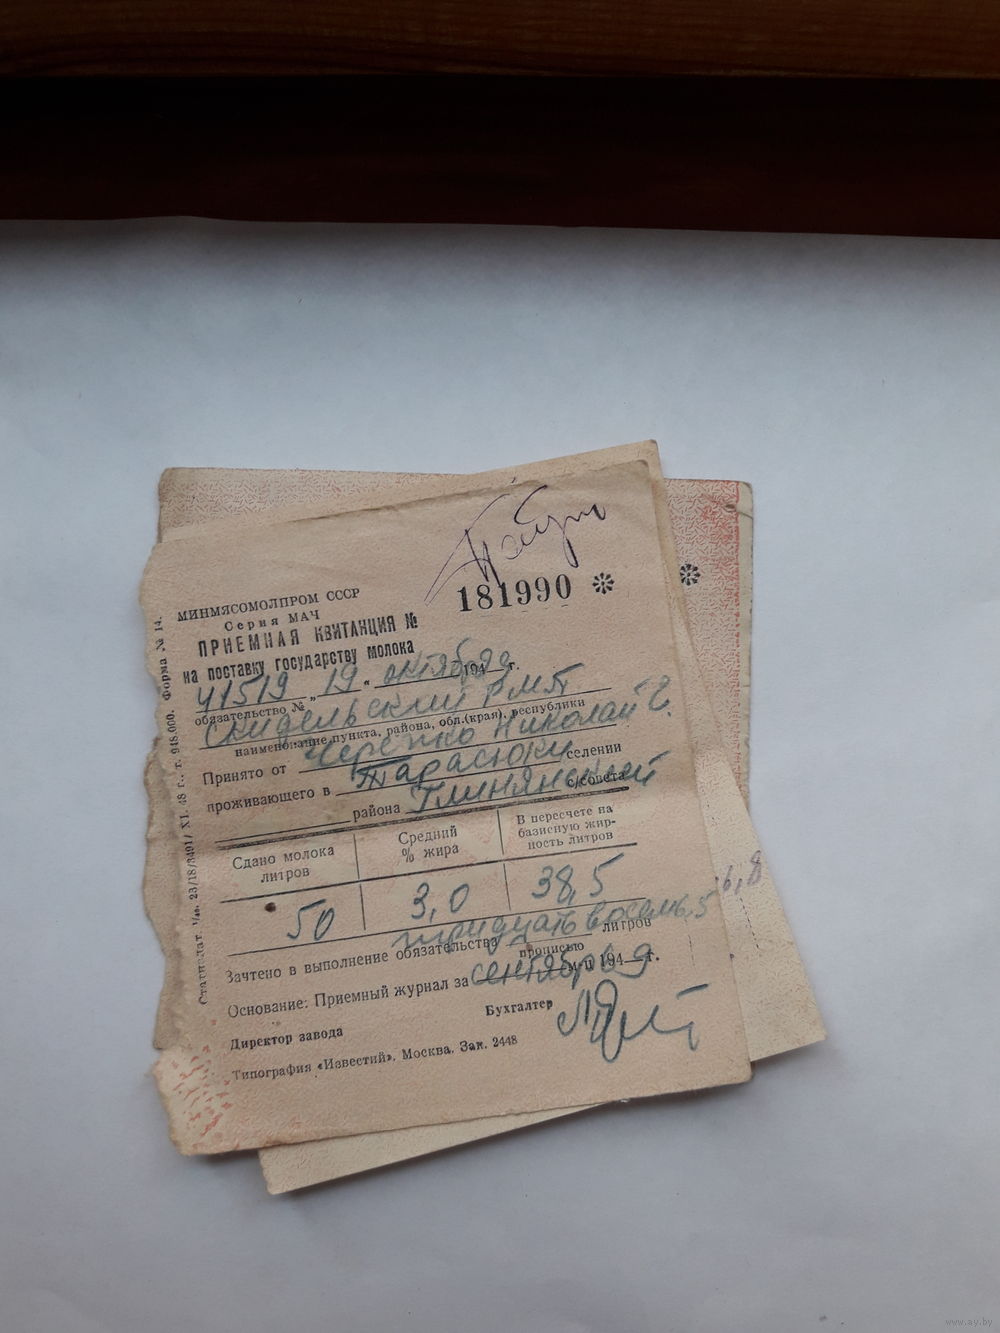 181990
МИНМЯСОМОЛПРОМ СССР
Серия МАЧ
ПРИЕМНАЯ КВИТАНЦИЯ №
на поставку государству молока
41519 „19“ октября 1949 г.
обязательство №
Скидельский РМП
наименование пункта, района, обл.(края), республики
Принято от Черепко Николай Г.
проживающего в Тарасюки селении
района Глинянский с/совета
Сдано молока литров
Средний % жира
В пересчете на базисную жирность литров
50 3,0 38,5
тридцать восемь,5 литров
Зачтено в выполнение обязательства
прописью
Основание: Приемный журнал за сентябрь м-ц 1949 г.
Директор завода Бухгалтер
Типография «Известий». Москва. Зак. 2448
Форма № 14.
6,8
www.ay.by